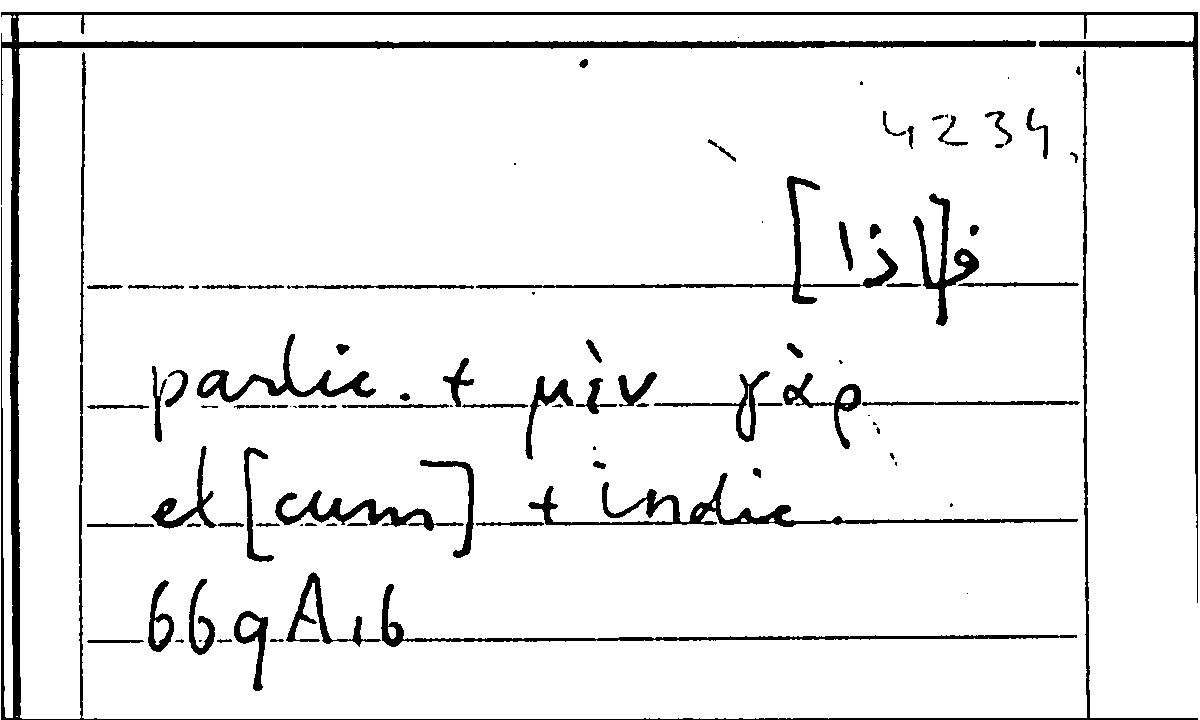 4234
ف[اذا]
partic. + μὲν γὰρ
et [cum] + indic.
669A16